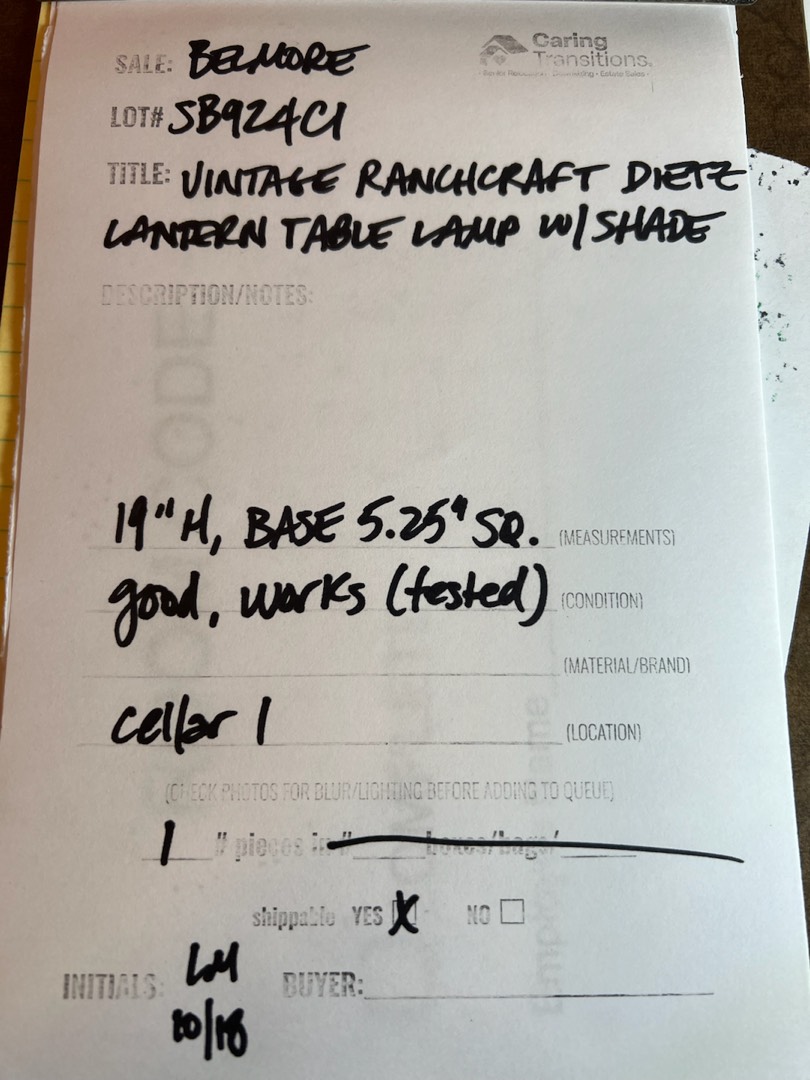 SALE: BELMORE
Caring
Transitions.
LOT# SB924C1
TITLE: VINTAGE RANCHCRAFT DIETZ
LANTERN TABLE LAMP W/SHADE
DESCRIPTION/NOTES:
19"H, BASE 5.25" SQ. (MEASUREMENTS)
good, works (tested) (CONDITION)
(MATERIAL/BRAND)
cellar 1 (LOCATION)
(CHECK PHOTOS FOR BLUR/LIGHTING BEFORE ADDING TO QUEUE)
1 # pieces in # boxes/bags/
shippable YES X NO
INITIALS: LM BUYER:
10/18